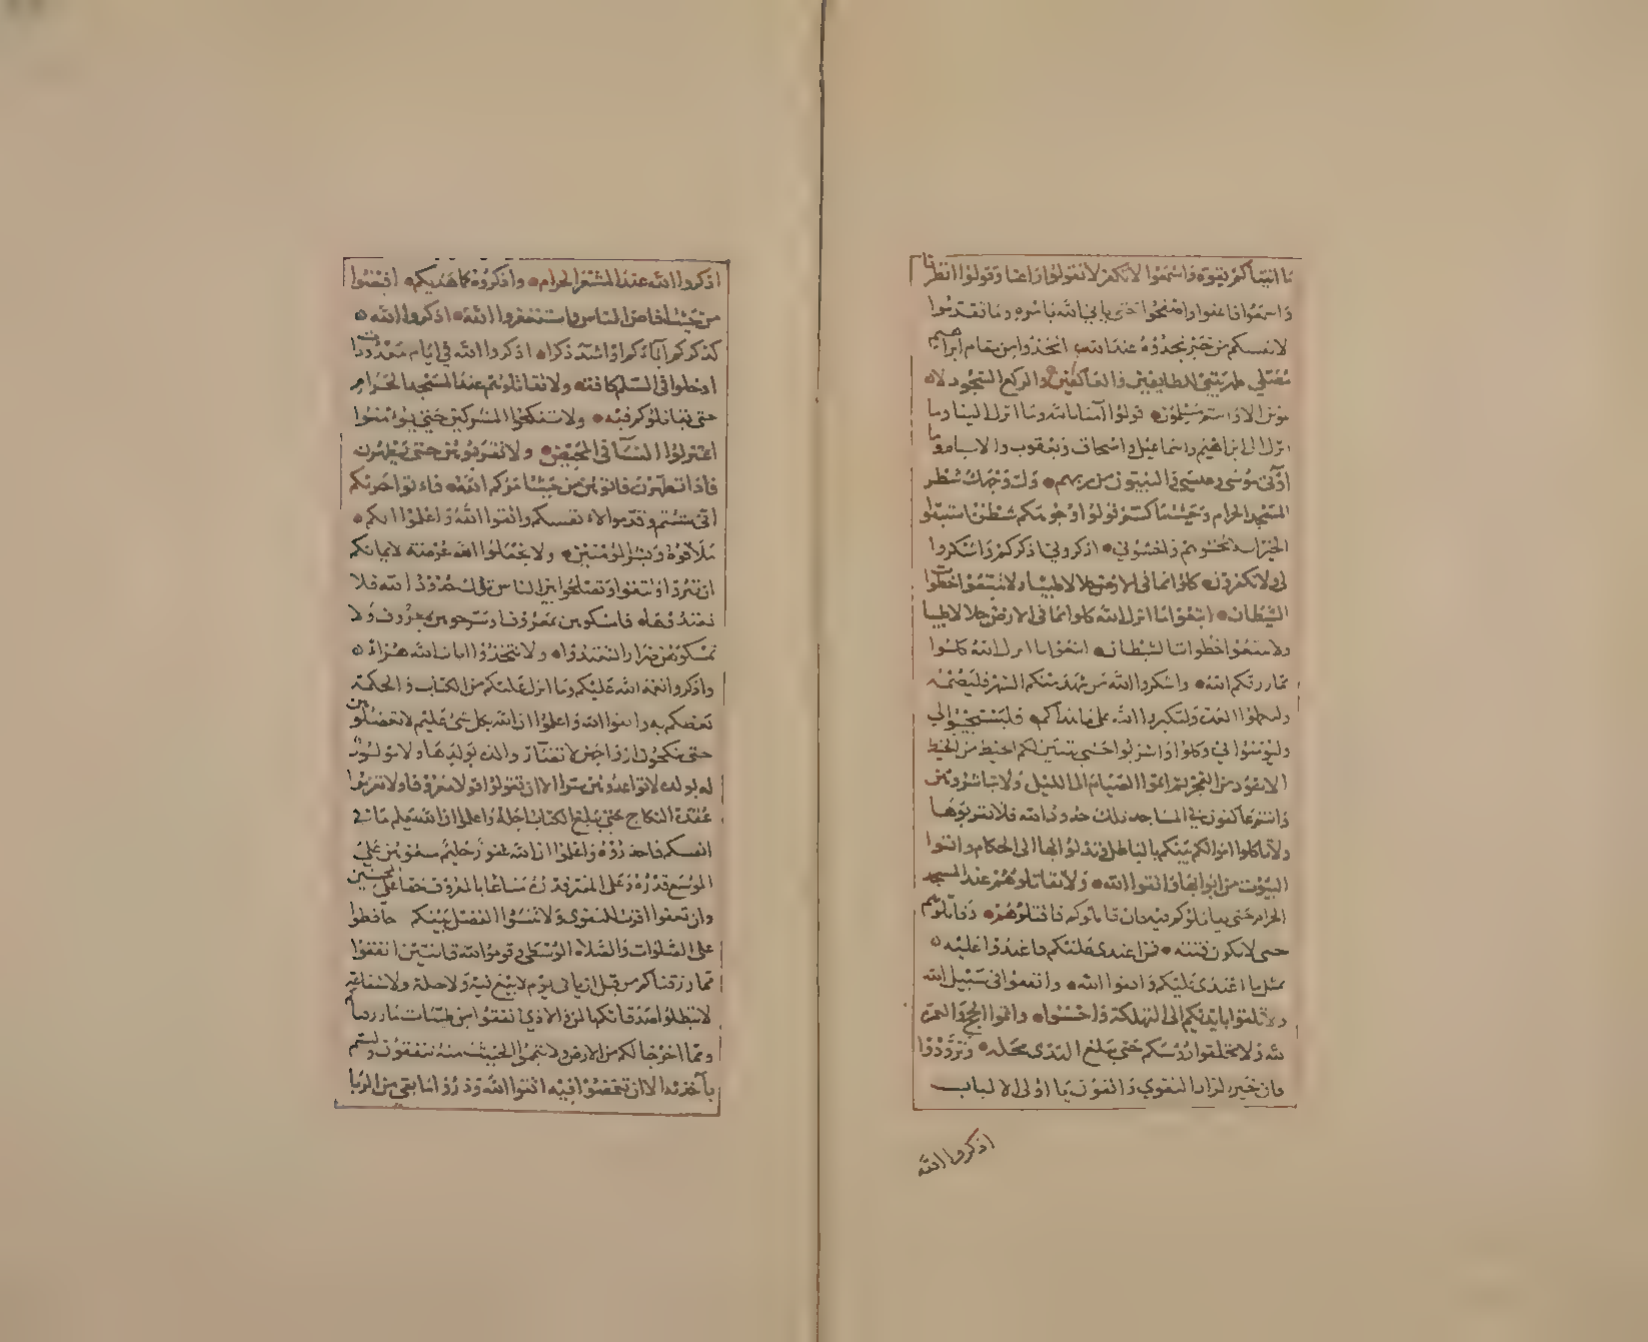 ما اتيناكم بقوة واسمعوا لا تكفر لا تقولوا راعنا وقولوا انظرنا
واسمعوا فاعفوا واصفحوا حتى ياتي الله بامره وما تقدموا
لانفسكم من خير تجدوه عند الله اتخذوا من مقام ابراهيم
مصلي طهر بيتي للطايفين والعاكفين والركع السجود لا
تموتن الا وانتم مسلمون قولوا آمنا بالله وما انزل الينا وما
انزل الى ابراهيم واسماعيل واسحاق ويعقوب والاسباط وما
اوتي موسى وعيسى والنبيون من ربهم ول وجهك شطر
المسجد الحرام وحيث ما كنتم فولوا وجوهكم شطره فاستبقوا
الخيرات تخشوهم واخشوني اذكروني اذكركم واشكروا
لي ولا تكفرون كلوا مما في الارض حلالا طيبا ولا تتبعوا خطوات
الشيطان اتبعوا ما انزل الله كلوا مما في الارض حلالا طيبا
ولا تتبعوا خطوات الشيطان اتبعوا ما انزل الله كلوا
مما رزقكم الله واشكروا الله من شهد منكم الشهر فليصمه
ولتكملوا العدة ولتكبروا الله على ما هداكم فليستجيبوا لي
وليؤمنوا لي وكلوا واشربوا حتى يتبين لكم الخيط من الخيط
الاسود من الفجر ثم اتموا الصيام الى الليل ولا تباشروهن
وانتم عاكفون في المساجد تلك حدود الله فلا تقربوها
ولا تاكلوا اموالكم بينكم بالباطل وتدلوا بها الى الحكام واتوا
البيوت من ابوابها واتقوا الله ولا تقاتلوهم عند المسجد
الحرام حتى يقاتلوكم فيه فان قاتلوكم فاقتلوهم وقاتلوهم
حتى لا تكون فتنة فمن اعتدى عليكم فاعتدوا عليه
بمثل ما اعتدى عليكم واتقوا الله وانفقوا في سبيل الله
ولا تلقوا بايديكم الى التهلكة واحسنوا واتموا الحج والعمرة
لله ولا تحلقوا رؤسكم حتى يبلغ الهدى محله وتزودوا
فان خير الزاد التقوي واتقون يا اولى الالباب
اذكروا الله
اذكروا الله عند المشعر الحرام واذكروه كما هديكم افيضوا
من حيث افاض الناس واستغفروا الله اذكروا الله
كذكركم آباءكم او اشد ذكرا اذكروا الله في ايام معدودات
ادخلوا في السلم كافة ولا تقاتلوهم عند المسجد الحرام
حتى يقاتلوكم فيه ولا تنكحوا المشركين حتى يؤمنوا
اعتزلوا النسآ في المحيض ولا تقربوهن حتى يطهرن
فاذا تطهرن فاتوهن من حيث امركم الله فاءتوا حرثكم
انى شئتم وقدموا لاءنفسكم واتقوا الله واعلموا انكم
ملاقوه وبشر المؤمنين ولا تجعلوا الله عرضة لايمانكم
ان تبروا وتتقوا وتصلحوا بين الناس تلك حدود الله فلا
تعتدوها فامسكوهن بمعروف او سرحوهن بمعروف ولا
تمسكوهن ضرارا لتعتدوا ولا تتخذوا ايات الله هزاء
واذكروا نعمة الله عليكم وما انزل عليكم من الكتاب والحكمة
يعظكم به واتقوا الله واعلموا ان الله بكل شئ عليم لا تعضلوهن
حتى ينكحن ازواجهن لا تضآر والدة بولدها ولا مولود
له بولده لا تواعدوهن سرا الا ان تقولوا قولا معروفا ولا تعزموا
عقدة النكاح حتى يبلغ الكتاب اجله واعلموا ان الله يعلم ما في
انفسكم فاحذروه واعلموا ان الله غفور حليم متعوهن على
الموسع قدره وعلى المقتر قدره متاعا بالمعروف حقا على المحسنين
وان تعفوا اقرب للتقوي ولا تنسوا الفضل بينكم حافظوا
على الصلوات والصلاة الوسطى وقوموا لله قانتين انفقوا
مما رزقناكم من قبل ان ياتي يوم لا بيع فيه ولا خلة ولا شفاعة
لا تبطلوا صدقاتكم بالمن والاذي انفقوا من طيبات ما رزقناكم
ومما اخرجنا لكم من الارض ولا تيمموا الخبيث منه تنفقون ولستم
بآخذيه الا ان تغمضوا فيه اتقوا الله وذروا ما بقي من الربا